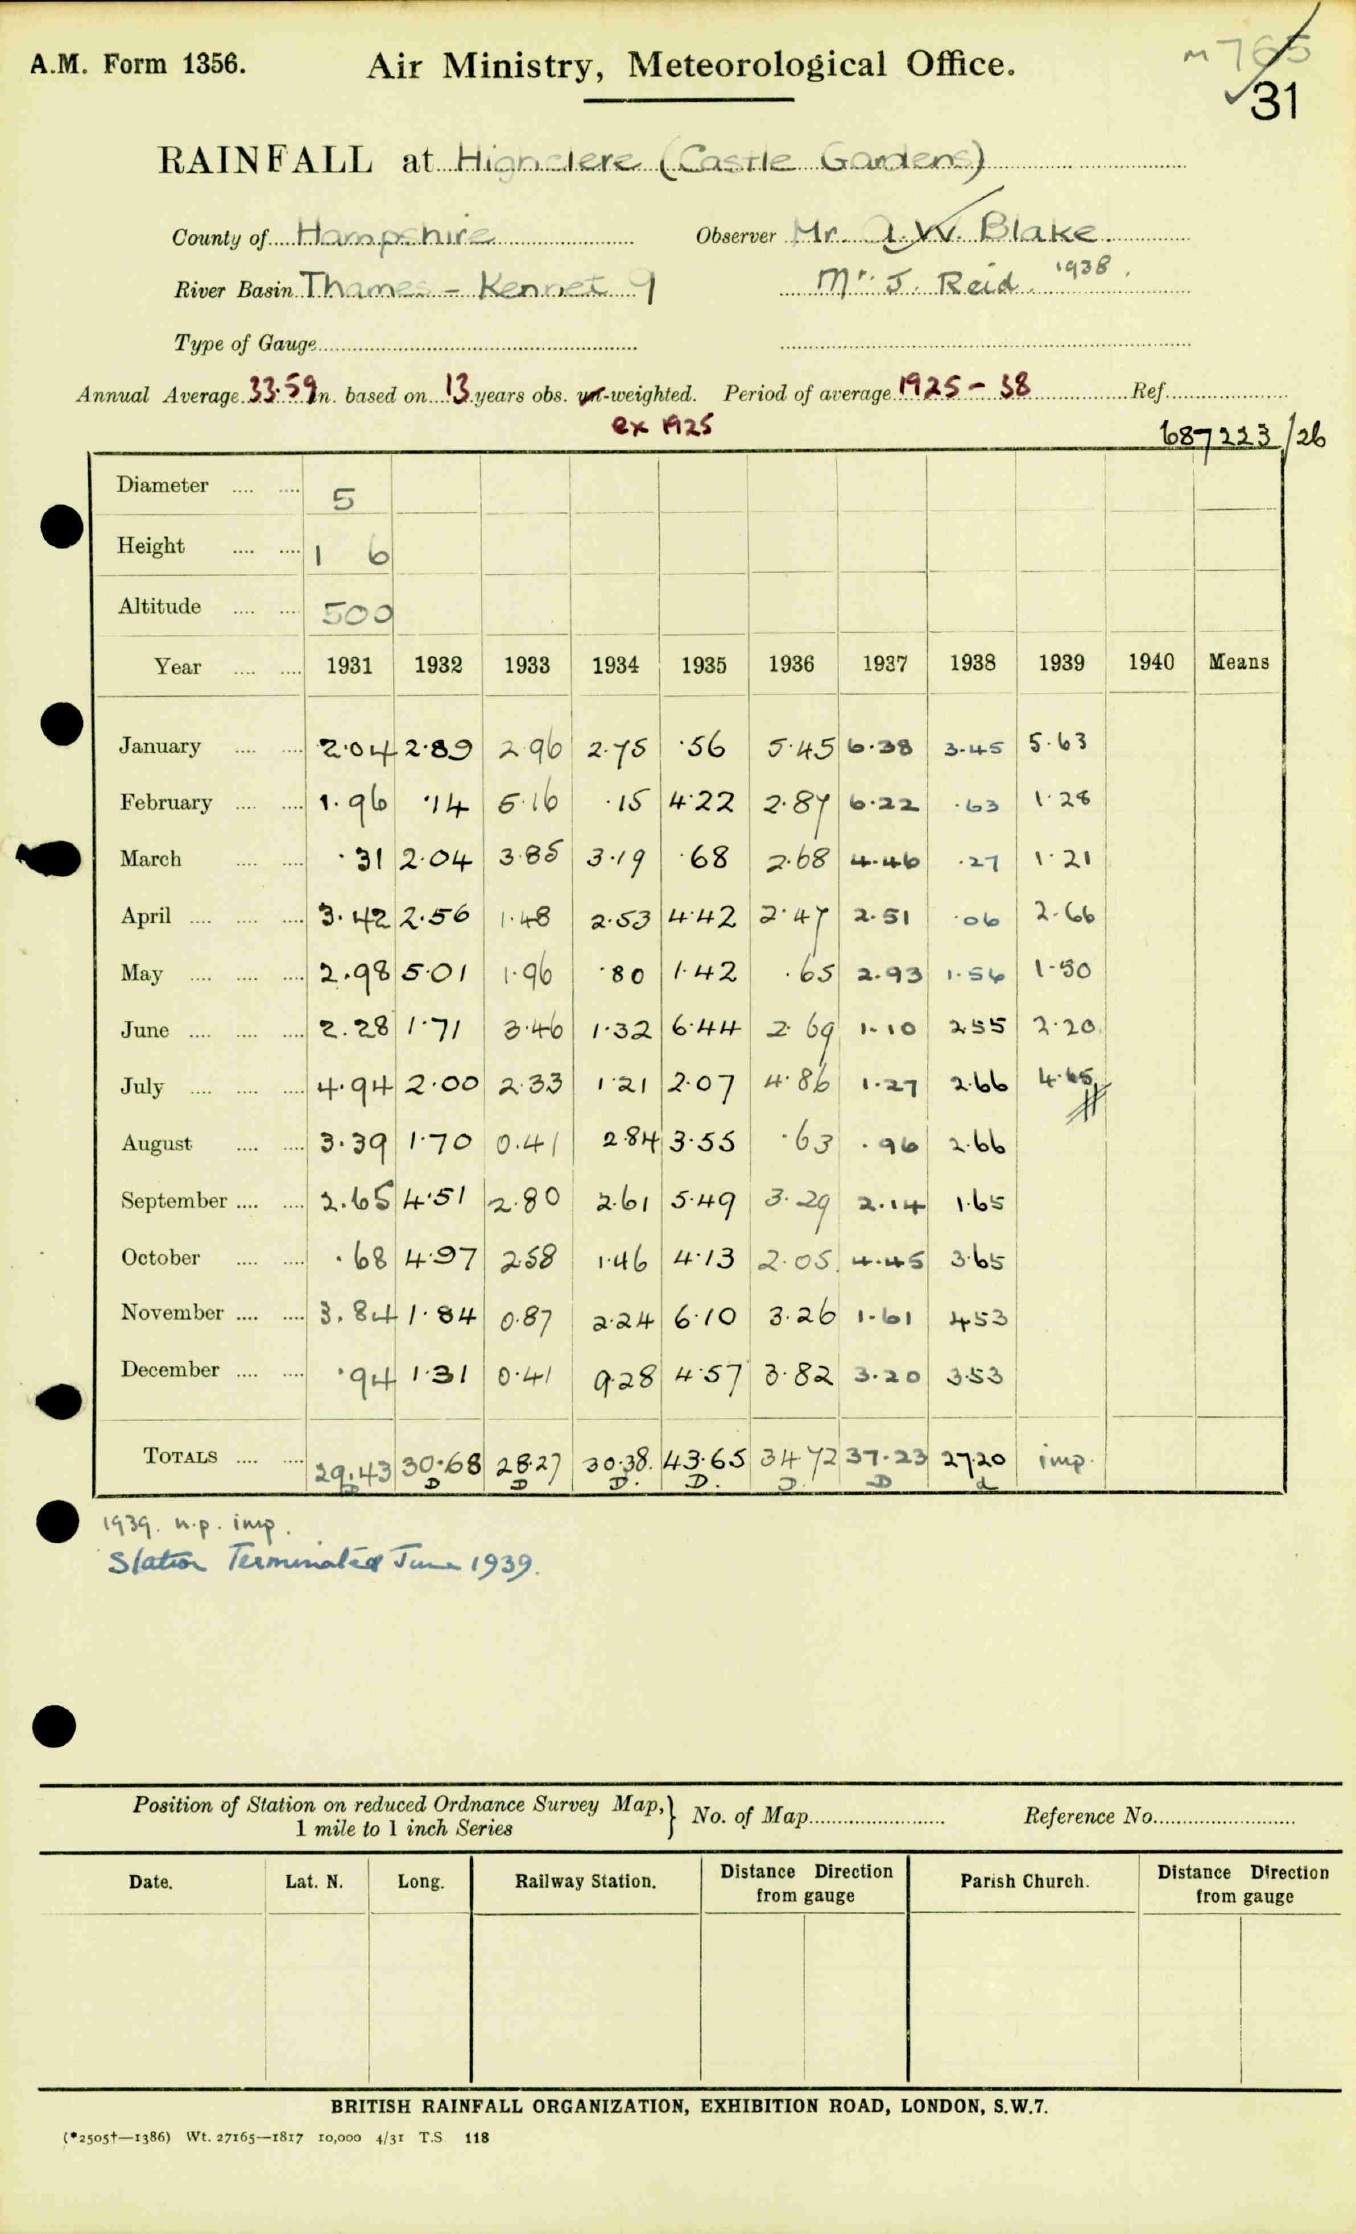 A.M. Form 1356. Air Ministry, Meteorological Office. M 765
31
RAINFALL at Highclere (Castle Gardens)
County of Hampshire Observer Mr. A. W. Blake.
River Basin Thames - Kennet 9 Mr. J. Reid. 1938.
Type of Gauge
Annual Average 33.59 in. based on 13 years obs. un-weighted. Period of average 1925 - 38 Ref.
ex 1925 687223/26
Diameter 5
Height 1 6
Altitude 500
Year 1931 1932 1933 1934 1935 1936 1937 1938 1939 1940 Means
January 2.04 2.89 2.96 2.75 .56 5.45 6.38 3.45 5.63
February 1.96 .14 5.16 .15 4.22 2.87 6.22 .63 1.28
March .31 2.04 3.85 3.19 .68 2.68 4.46 .27 1.21
April 3.42 2.56 1.48 2.53 4.42 2.47 2.51 .06 2.66
May 2.98 5.01 1.96 .80 1.42 .65 2.93 1.56 1.50
June 2.28 1.71 3.46 1.32 6.44 2.69 1.10 2.55 2.20
July 4.94 2.00 2.33 1.21 2.07 4.86 1.27 2.66 4.65
August 3.39 1.70 0.41 2.84 3.55 .63 .96 2.66
September 2.65 4.51 2.80 2.61 5.49 3.29 2.14 1.65
October .68 4.97 2.58 1.46 4.13 2.05 4.45 3.65
November 3.84 1.84 0.87 2.24 6.10 3.26 1.61 4.53
December .94 1.31 0.41 9.28 4.57 3.82 3.20 3.53
TOTALS 29.43 30.68 28.27 30.38 43.65 34.72 37.23 27.20 imp.
D D D D. D. D. D d
1939. n.p. imp.
Station Terminated June 1939.
Position of Station on reduced Ordnance Survey Map, } No. of Map Reference No.
1 mile to 1 inch Series
Date. Lat. N. Long. Railway Station. Distance Direction from gauge Parish Church. Distance Direction from gauge
BRITISH RAINFALL ORGANIZATION, EXHIBITION ROAD, LONDON, S.W.7.
(*2505†—1386) Wt. 27165—1817 10,000 4/31 T.S 118